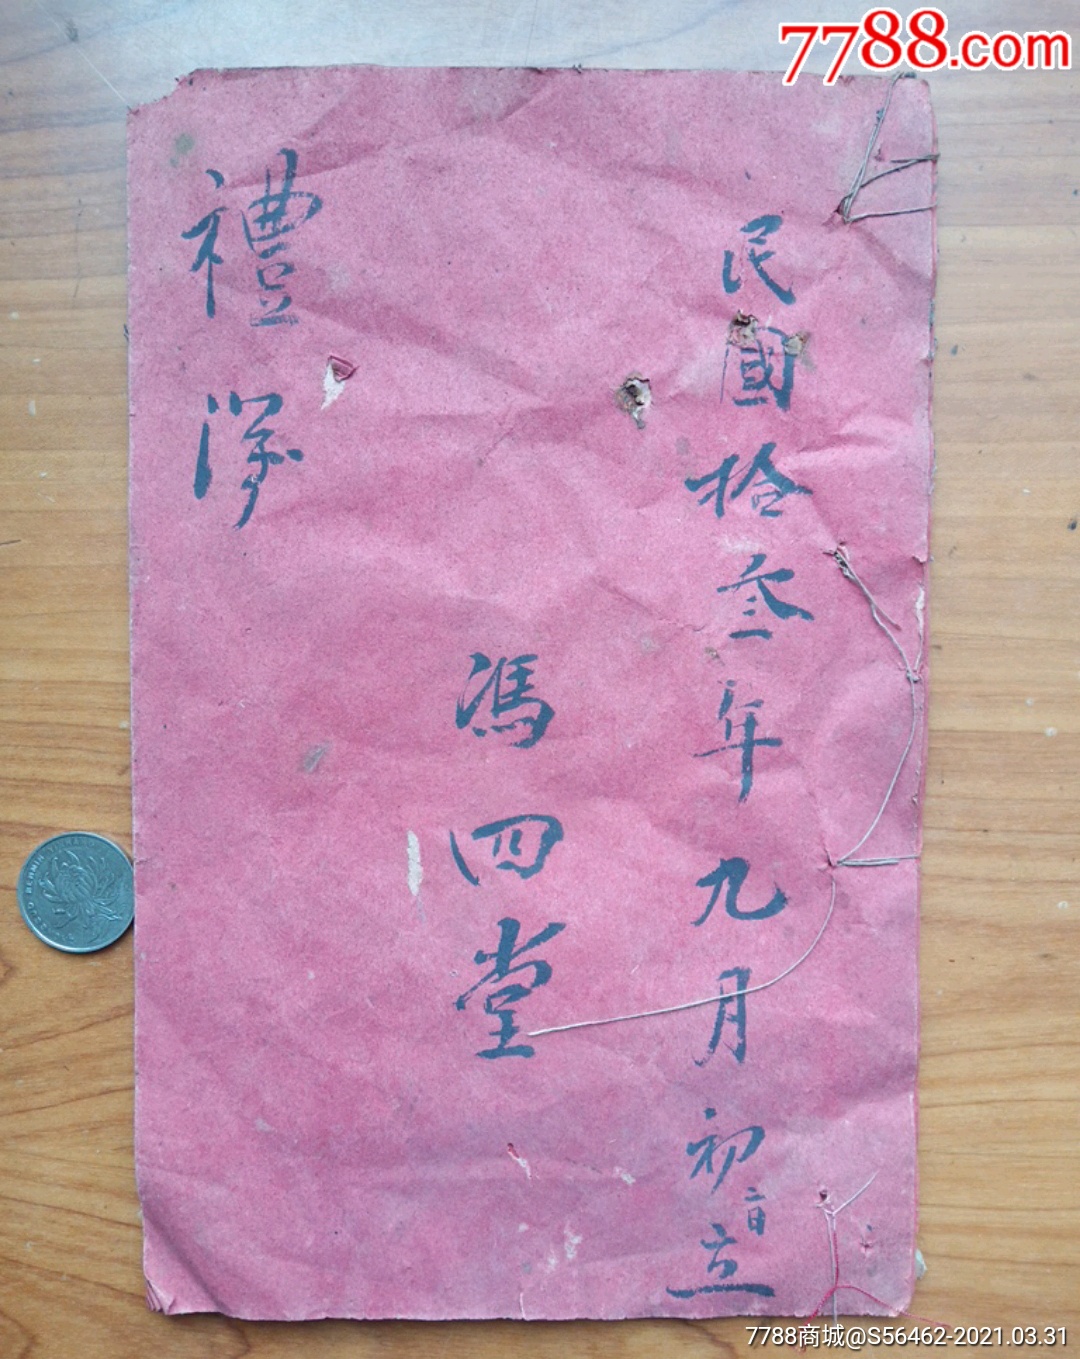 7788.com
民國拾叁年九月初二日立
馮四堂
禮
7788商城@S56462-2021.03.31